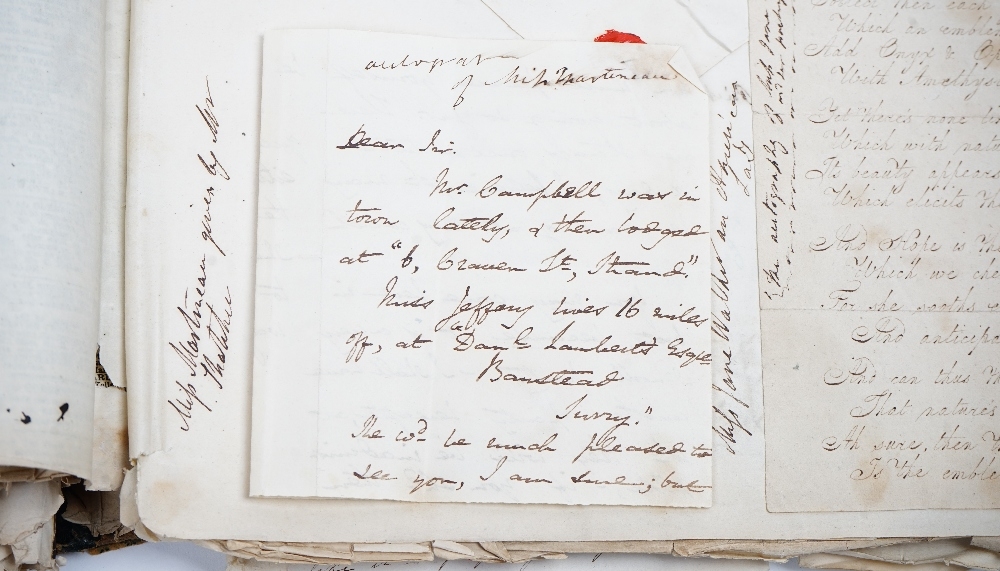 autograph
of Miss Martineau
Dear Sir.
Mr. Campbell was in
town lately, & then lodged
at "6, Craven St, Strand."
Miss Jeffery lives 16 miles
off, at "Danl Lamberts Esqre
Banstead
Surry."
She wd be much pleased to
see you, I am sure; but
Miss Martineau given by Mrs
Thatcher
Miss Jane Walker an American
Lady
The autography of Miss Jane
Which an emble
Add Onyx &
With Amethys
Yet there's none
Which with natu
Its beauty appears
Which elicits
And Hope is
Which we che
For she sooths
And anticipa
And can thus
That nature's
Ah sure, then
Is the emble